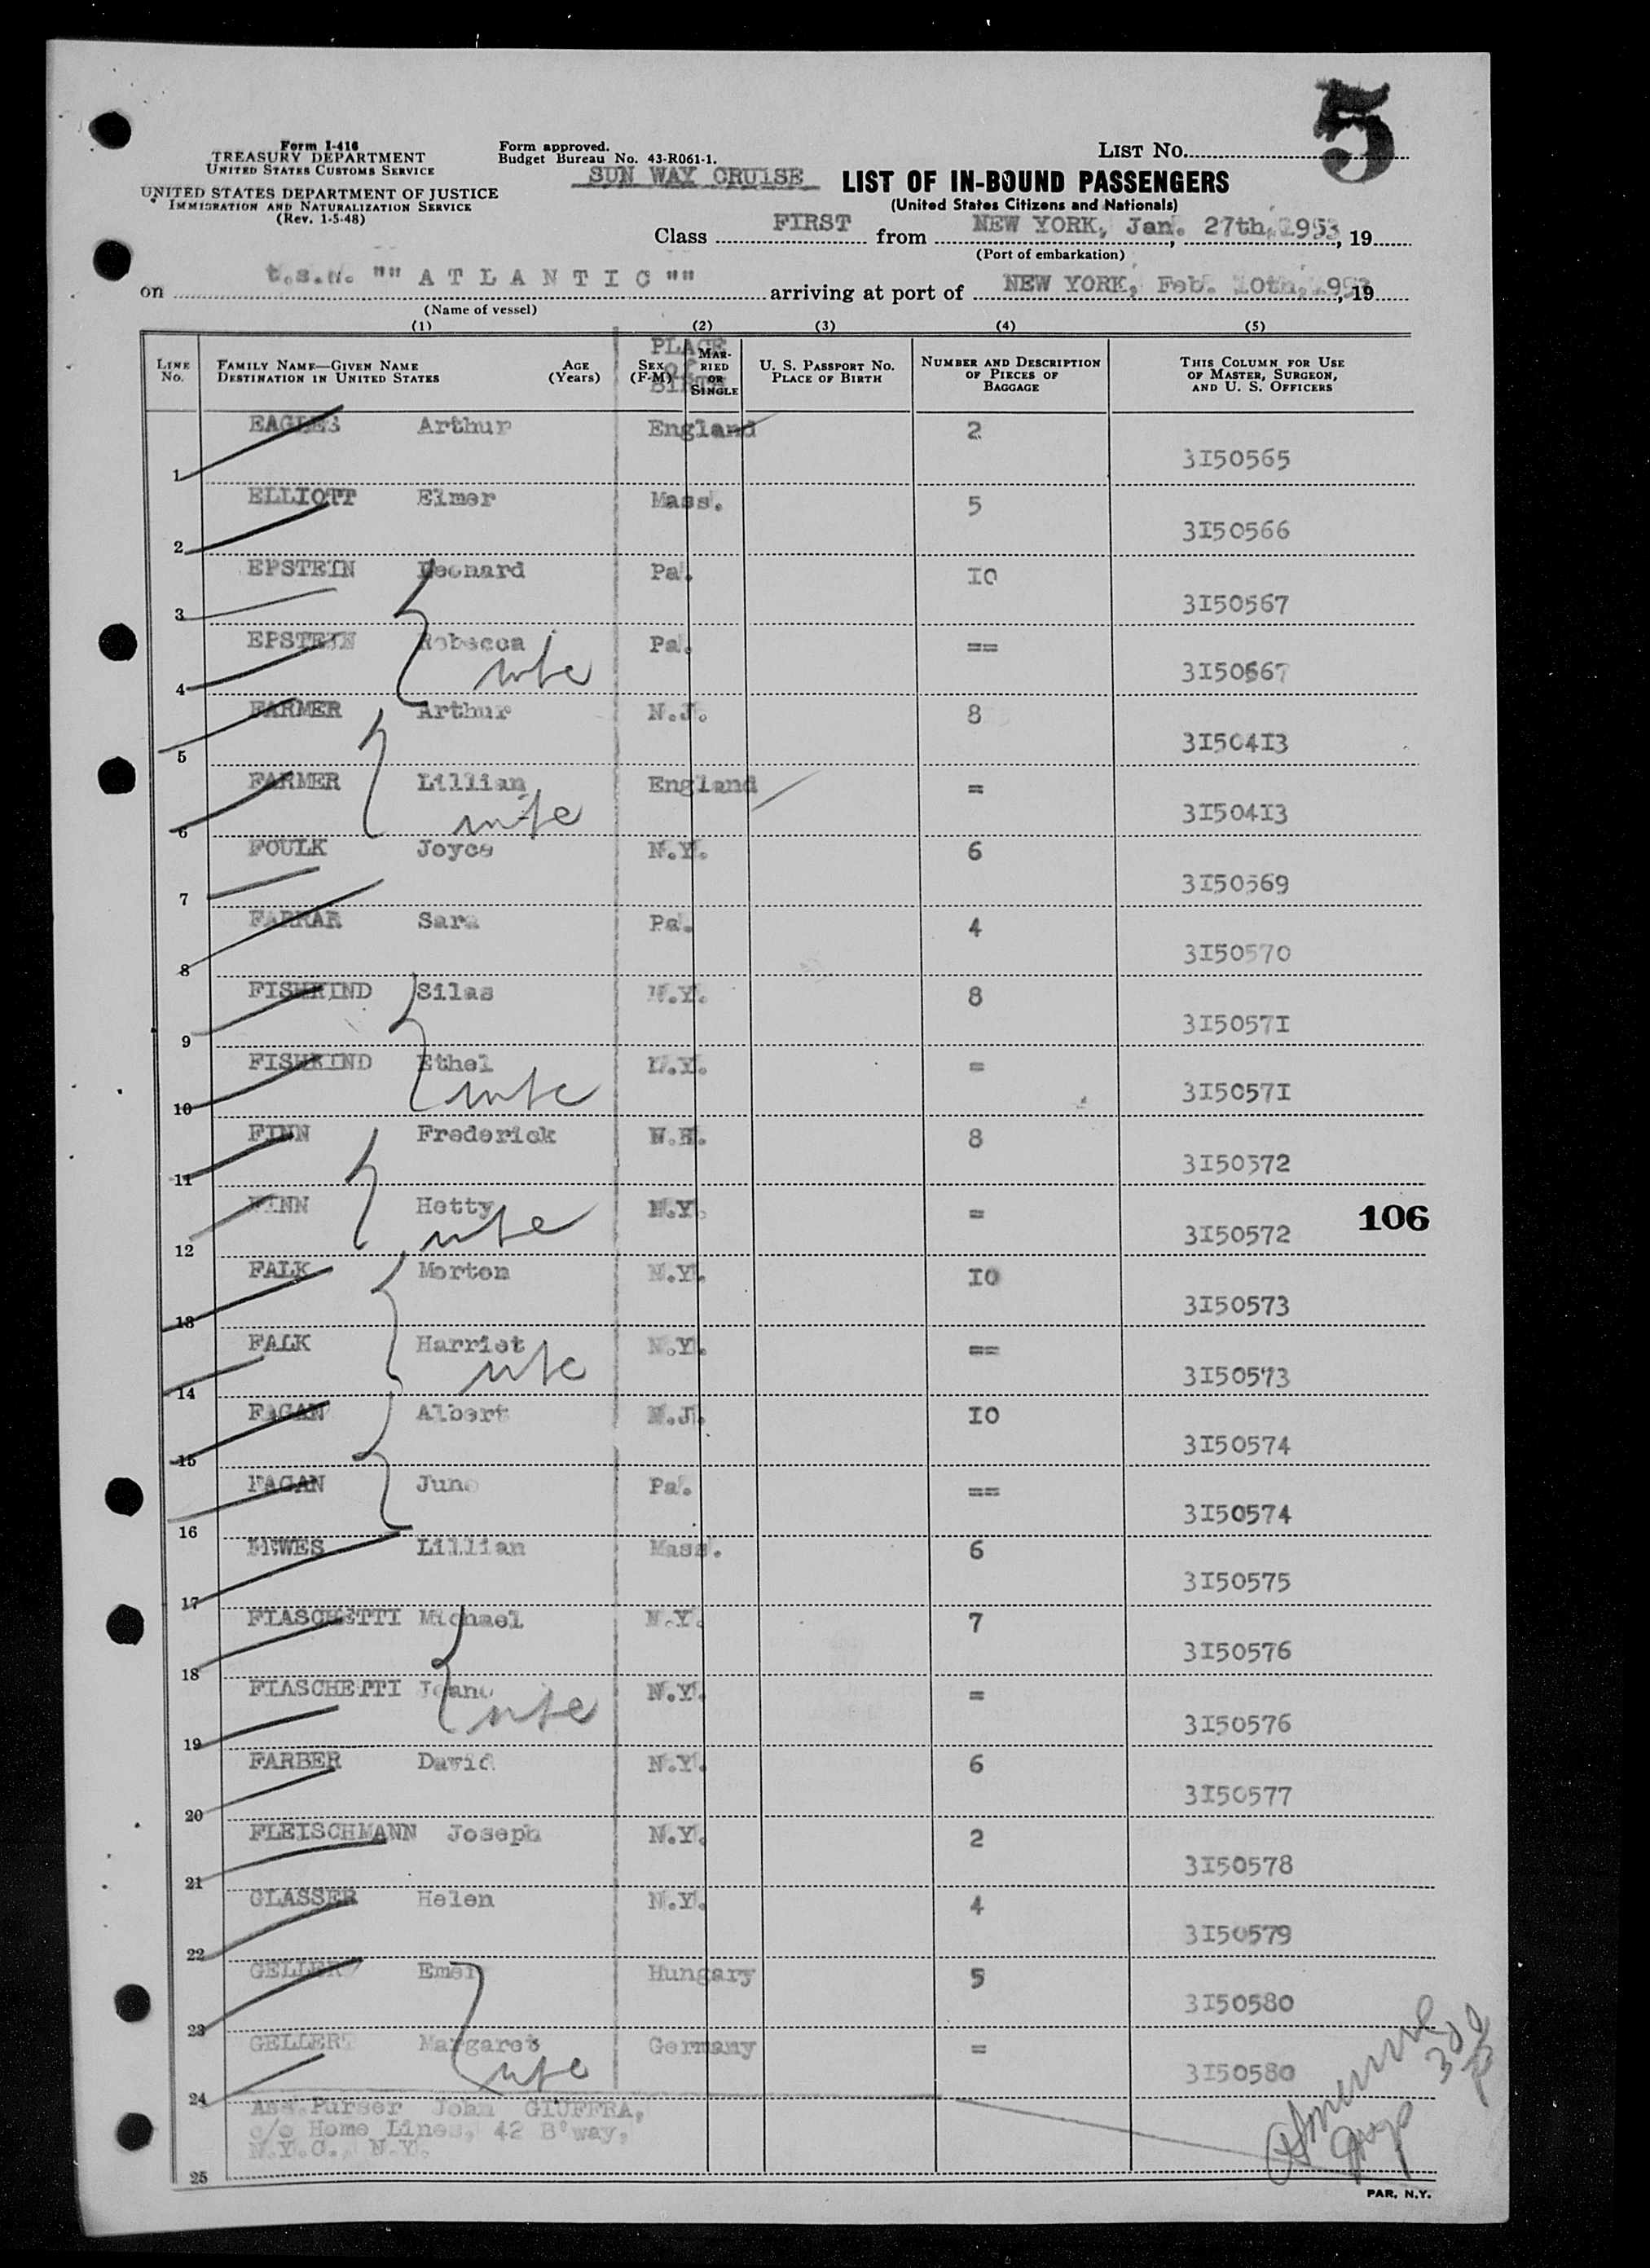 5
Form I-416
TREASURY DEPARTMENT
UNITED STATES CUSTOMS SERVICE
UNITED STATES DEPARTMENT OF JUSTICE
IMMIGRATION AND NATURALIZATION SERVICE
(Rev. 1-5-48)
Form approved.
Budget Bureau No. 43-R061-1.
LIST No.
SUN WAY CRUISE LIST OF IN-BOUND PASSENGERS
(United States Citizens and Nationals)
Class FIRST from NEW YORK, Jan. 27th, 1953, 19
(Port of embarkation)
on t.s.n. "" A T L A N T I C "" arriving at port of NEW YORK, Feb. 10th, 1953, 19
(Name of vessel)
(1) (2) (3) (4) (5)
LINE No. FAMILY NAME—GIVEN NAME DESTINATION IN UNITED STATES AGE (Years) SEX (F-M) PLACE OF BIRTH MARRIED OR SINGLE U. S. PASSPORT No. PLACE OF BIRTH NUMBER AND DESCRIPTION OF PIECES OF BAGGAGE THIS COLUMN FOR USE OF MASTER, SURGEON, AND U. S. OFFICERS
1 EAGLES Arthur England 2 3I50565
2 ELLIOTT Elmer Mass. 5 3I50566
3 EPSTEIN Leonard Pa. IO 3I50567
4 EPSTEIN Rebecca wife Pa. == 3I50567
5 FARMER Arthur N.J. 8 3I504I3
6 FARMER Lillian wife England = 3I504I3
7 FOULK Joyce N.Y. 6 3I50569
8 FARRAR Sara Pa. 4 3I50570
9 FISHKIND Silas N.Y. 8 3I5057I
10 FISHKIND Ethel wife N.Y. = 3I5057I
11 FINN Frederick N.H. 8 3I50572
12 FINN Hetty wife N.Y. = 3I50572
106
13 FALK Morton N.Y. IO 3I50573
14 FALK Harriet wife N.Y. == 3I50573
15 FAGAN Albert N.J. IO 3I50574
16 FAGAN June Pa. == 3I50574
17 Lillian Mass. 6 3I50575
18 FIASCHETTI Michael N.Y. 7 3I50576
19 FIASCHETTI Jeane wife N.Y. = 3I50576
20 FARBER David N.Y. 6 3I50577
21 FLEISCHMANN Joseph N.Y. 2 3I50578
22 GLASSER Helen N.Y. 4 3I50579
23 GELLERT Hungary 5 3I50580
24 GELLERT Margaret wife Germany = 3I50580
Ass. Purser John GIUFFRA,
c/o Home Lines, 42 B'way,
N.Y.C., N.Y.
25
PAR. N.Y.